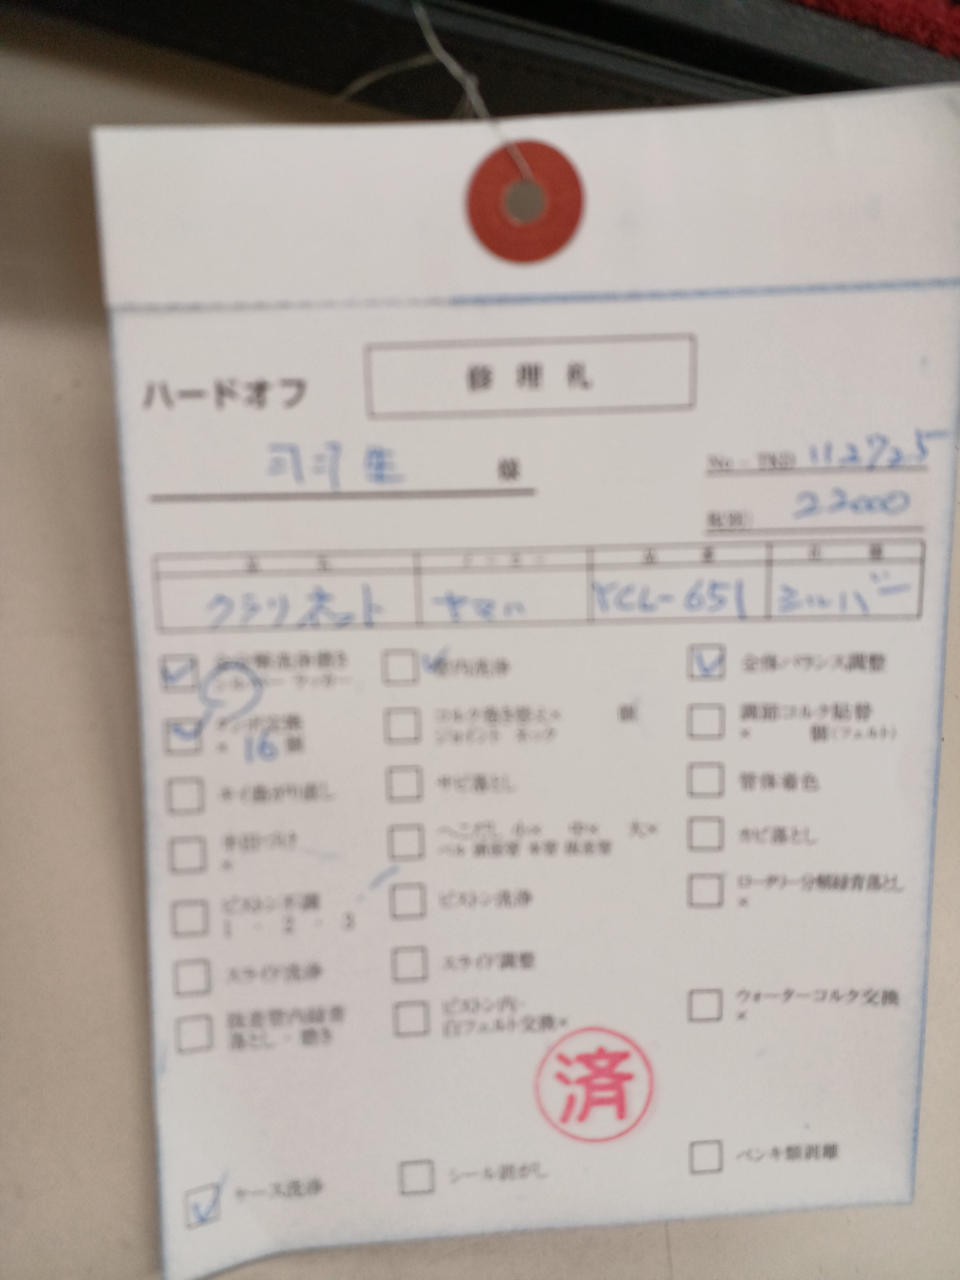 修理札
ハードオフ
様 No - 112725
税別 22000
品名 メーカー 品番 仕様
クラリネット ヤマハ YCL-651 シルバー
全分解洗浄磨き 管内洗浄 全体バランス調整
タンポ交換 コルク巻き替え× 個 調節コルク貼替
× 16個 ジョイント ネック × 個(フェルト)
キイ曲がり直し サビ落とし 管体着色
半田づけ へこ 小× 中× 大× カビ落とし
×
ピストン不調 ピストン洗浄 ロータリー分解緑青落とし
1 ・ 2 ・ 3 ×
スライド洗浄 スライド調整
抜差管内緑青 ピストン内・ ウォーターコルク交換
落とし・磨き 白フェルト交換× ×
済
ケース洗浄 シール剥がし ペンキ類剥離